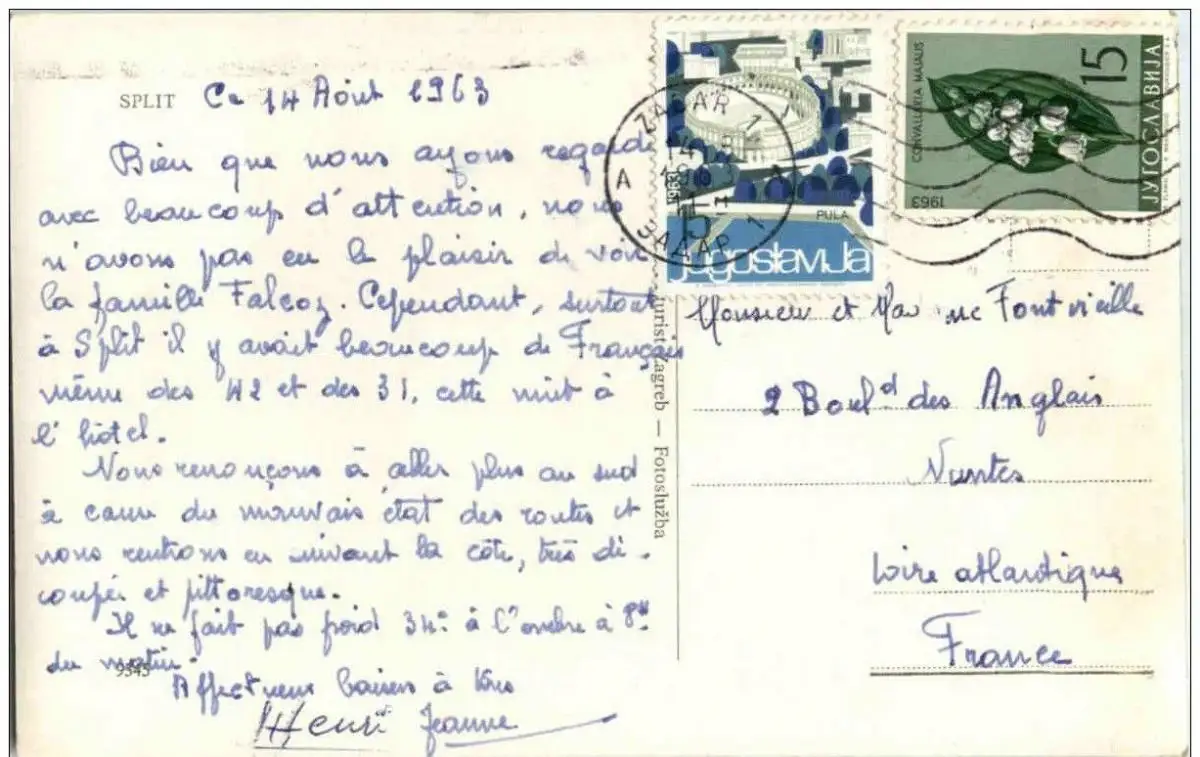 SPLIT Ce 14 Août 1963
Bien que nous ayons regardé
avec beaucoup d'attention, nous
n'avons pas eu le plaisir de voir
la famille Falcoz. Cependant, surtout
à Split il y avait beaucoup de Français
même des 42 et des 31, cette nuit à
l'hôtel.
Nous renonçons à aller plus au sud
à cause du mauvais état des routes et
nous rentrons en suivant la côte, très dé-
coupée et pittoresque.
Il ne fait pas froid 34° à l'ombre à 8H
du matin.
9345
Affectueux baisers à tous
Henri Jeanne
Turist Zagreb — Fotoslužba
ZADAR 1
ЗАДАР 1
1963
15
PULA
jugoslavija
CONVALLARIA MAJALIS
15
ЈУГОСЛАВИЈА
1963
Monsieur et Madame Fontvieille
2 Boul^d des Anglais
Nantes
Loire atlantique
France